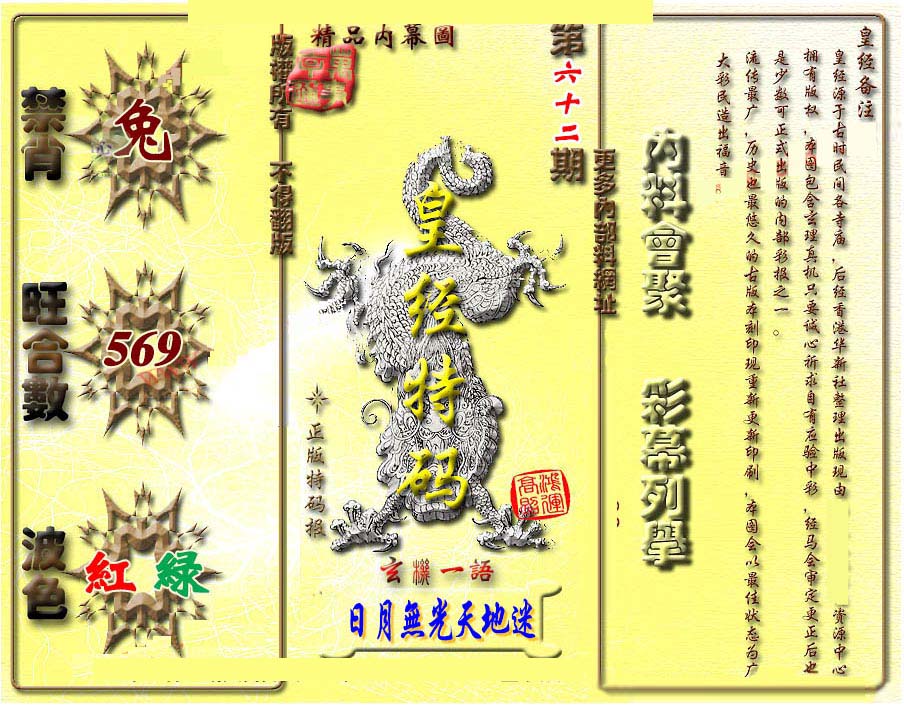 精品內幕圖
第六十二期
版權所有 不得翻版
更多內部料網址
禁肖
兔
旺合數
569
波色
紅 綠
皇经特码
正版特码报
鴻運高照
玄機一語
日月無光天地迷
內料會聚 彩幕列舉
皇经备注
皇经源于古时民间各寺庙,后经香港华新社整理出版现由 资源中心
拥有版权,本图包含玄理真机只要诚心祈求自有应验中彩,经马会审定更正后也
是少数可正式出版的内部彩报之一。
流传最广,历史也最悠久的古版本刻印现重新更新印刷,本图会以最佳状态为广
大彩民造出福音